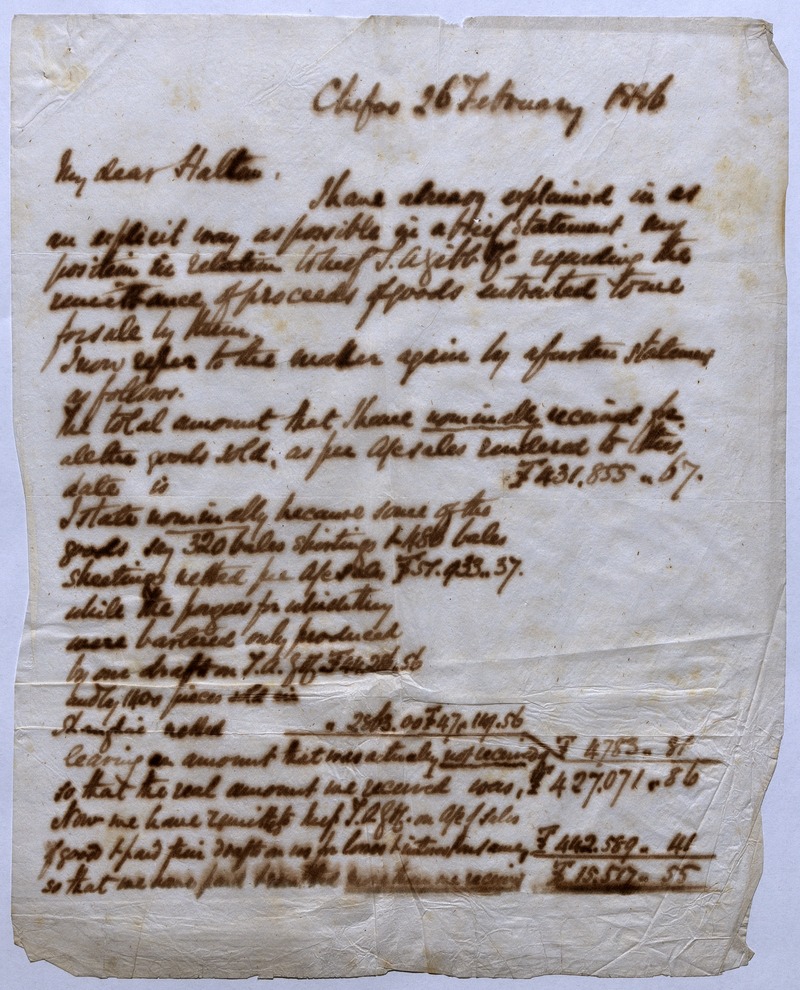 Chefoo 26 February 1886
My dear Haltam.
I have already explained in as
an explicit way as possible in a brief statement my
position in relation to T. A. Gibb & Co regarding the
remittance of proceeds of goods entrusted to me
for sale by them.
I now refer to the matter again by a further statement
as follows.
The total amount that I have nominally received for
all the goods sold, as per A/c sales rendered to this
date is ₮ 431,855 .. 67.
I state nominally because some of the
goods say 320 bales shirtings & 450 bales
sheetings netted per A/c sales ₮ 51.933..37.
while the pongees for which they
were bartered only produced
by our drafts on T.A.G &
and by 1400 pieces sold in
Shanghai netted .. 2863.00 ₮ 47,149.56
leaving an amount that was actually not received ₮ 4783.. 81
so that the real amount we received was, ₮ 427,071 .. 86
Now we have remitted T.A.G & on A/c of sales
of goods & paid their drafts on us for losses & interest insurance ₮ 442.589.. 41
so that we have paid more than we received ₮ 15.517.. 55